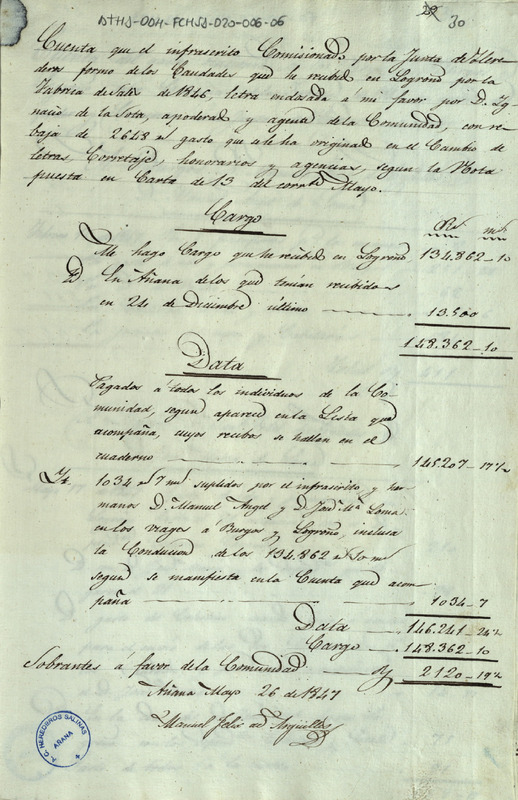 ATHA-DOH-FCHSA-020-006-06
29 30
Cuenta que el infrascrito Comisionado por la Junta de Here-
deros formo de los Caudales que he recibido en Logroño por la
Fabrica de Sales de 1846, letra endosada á mi favor por D. Yg-
nacio de la Sota, apoderado y agente de la Comunidad, con re-
baja de 2648 rs gasto que se le ha original en el Cambio de
letras, Corretaje, honorarios y agencias, segun la Nota
puesta en Carta de 13 del corrte Mayo.
Cargo
Rs ms
Me hago Cargo que he recibido en Logroño 134.862-10
D. En Añana de los que tenian recibidos
en 24 de Diciembre último 13.500
148.362-10
Data
Pagados a todos los individuos de la Co-
munidad, segun aparece en la Lista que
acompaña, cuyos recibos se hallan en el
cuaderno 145.207-17½
Yt. 1034 rs 7 ms suplidos por el infrascrito y her-
manos D. Manuel Angel y D. José Ma Loma
en los viages á Burgos y Logroño, inclusa
la Conducion de los 134.862 rs 10 ms
segun se manifiesta en la Cuenta que acom-
paña 1034-7
Data 146.241-24½
Cargo 148.362-10
Sobrantes á favor de la Comunidad 2120-19½
Añana Mayo 26 de 1847
Manuel Felix de Argüelles
A. C. HEREDEROS SALINAS
AÑANA